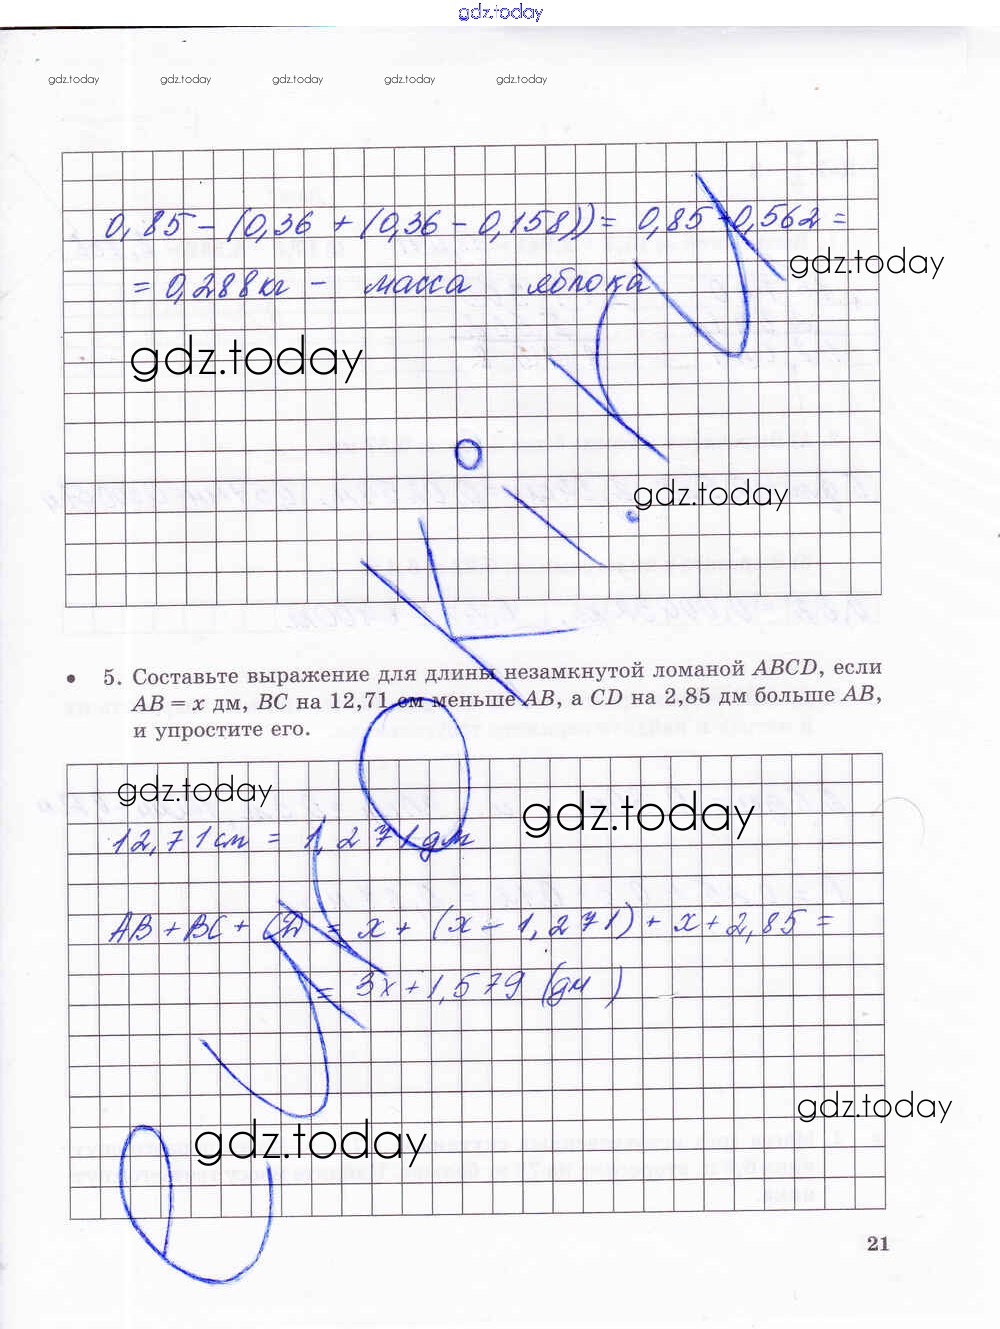 gdz.today
gdz.today gdz.today gdz.today gdz.today gdz.today
0,85 - (0,36 + (0,36 - 0,158)) = 0,85 - 0,562 =
gdz.today
= 0,288 кг - масса яблока
gdz.today
gdz.today
• 5. Составьте выражение для длины незамкнутой ломаной ABCD, если
AB = x дм, BC на 12,71 см меньше AB, а CD на 2,85 дм больше AB,
и упростите его.
gdz.today
gdz.today
12,71 см = 1,271 дм
AB + BC + CD = x + (x - 1,271) + x + 2,85 =
= 3x + 1,579 (дм)
gdz.today
gdz.today
21